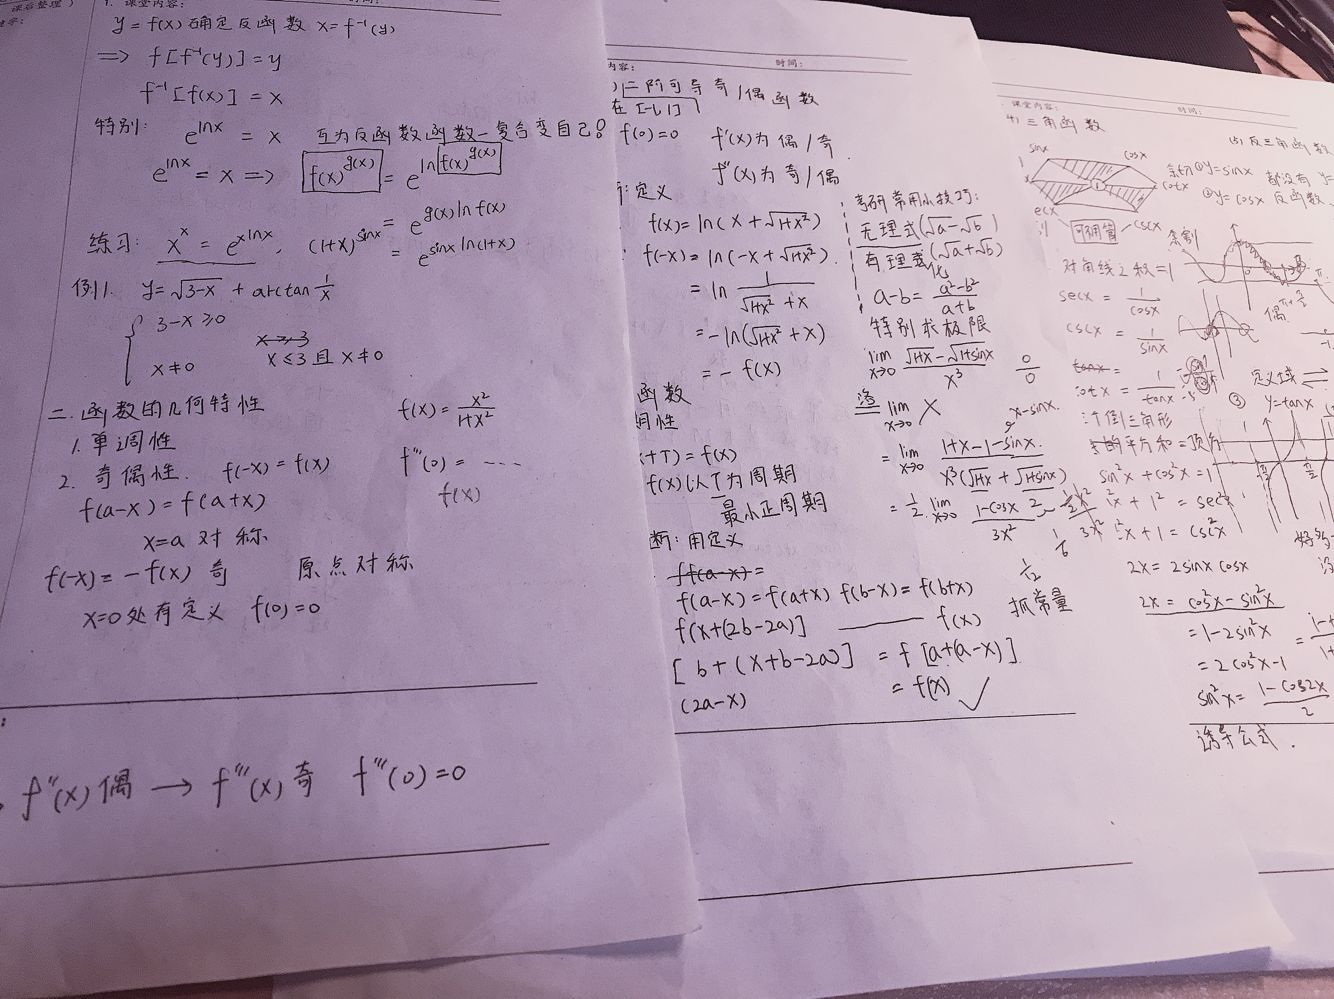 课后整理）
1. 课堂内容：
时间：
y=f(x) 确定反函数 x=f⁻¹(y)
⟹ f[f⁻¹(y)]=y
f⁻¹[f(x)]=x
特别: e^{lnx} = x 互为反函数函数一复合变自己！
e^{lnx}=x ⟹ f(x)^{g(x)} = e^{ln f(x)^{g(x)}}
= e^{g(x)lnf(x)}
练习: x^x = e^{xlnx}. (1+x)^{sinx} = e^{sinxln(1+x)}
例1. y=√(3-x) + arctan 1/x
3-x≥0
x≤3 且 x≠0
x≠0
二. 函数的几何特性
1. 单调性
2. 奇偶性. f(-x)=f(x)
f(a-x)=f(a+x)
x=a 对称
f(-x)=-f(x) 奇 原点对称
x=0处有定义 f(0)=0
f(x)= x²/(1+x²)
f'''(0)= ----
f(x)
f''(x)偶 → f'''(x)奇 f'''(0)=0
内容：
时间：
二阶可导奇/偶函数
在[-l,l]
f(0)=0 f'(x)为偶/奇.
f''(x)为奇/偶
定义
f(x)=ln(x+√(1+x²))
f(-x)=ln(-x+√(1+x²)).
= ln 1/(√(1+x²)+x)
=-ln(√(1+x²)+x)
= - f(x)
函数
期性
(x+T)=f(x)
f(x)以T为周期
最小正周期
断: 用定义
f(a-x)=f(a+x) f(b-x)=f(b+x)
f[x+(2b-2a)] —— f(x)
[b+(x+b-2a)] = f[a+(a-x)]
(2a-x) = f(x) ✓
考研常用小技巧:
无理式(√a-√b)
有理式(√a+√b)
化
a-b= (a²-b²)/(a+b)
特别求极限
lim x→0 (√(1+x)-√(1+sinx))/x³ 0/0
lim x→0 ╳
x-sinx.
= lim x→0 (1+x-1-sinx)/(x³(√(1+x)+√(1+sinx)))
= 1/2 lim x→0 (1-cosx)/3x² ~ ½x²/3x² 1/6
1/12
抓常量
课堂内容：
时间：
三角函数
(5) 反三角函数
sinx cosx
1 cotx
secx cscx
对角线之积=1
secx = 1/cosx
cscx = 1/sinx
cotx = 1/tanx
个倒三角形
的平方和=顶角
sin²x+cos²x=1
²x+1²=sec²x
²x+1=csc²x
2x=2sinxcosx
2x=cos²x-sin²x
=1-2sin²x
=2cos²x-1
sin²x= (1-cos2x)/2
诱导公式.
①y=sinx 都没有
②y=cosx 反函数.
偶
定义域
③ y=tanx